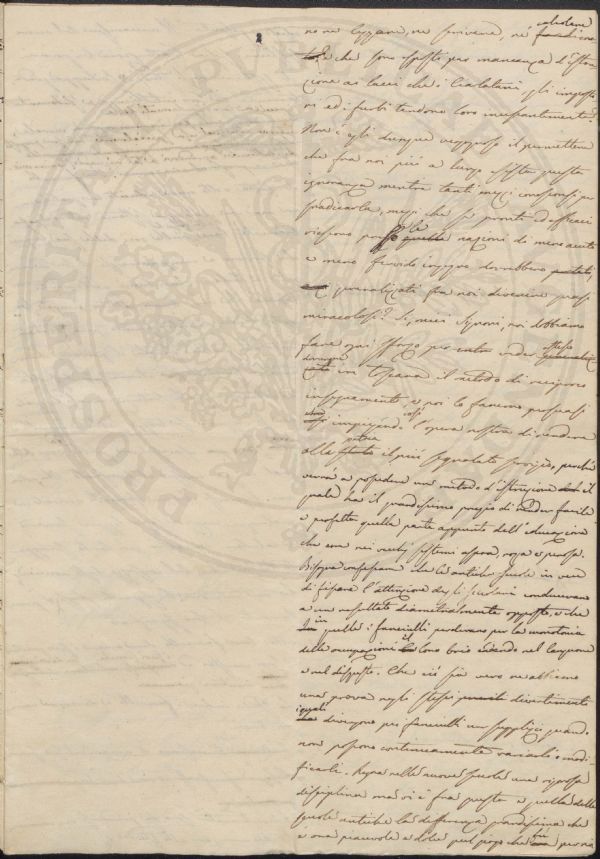 no ne leggere, ne scrivere, ne calcolare
e che sono esposti per mancanza d'istru
zione ai lacci che i Ciarlatani, gli imposto
ri ed i furbi tendono loro incessantemente.
Non è egli dunque vergognoso il permettere
che fra noi più a lungo esista questa
ignoranza mentre tanti mezzi conosconsi per
sradicarla, mezzi che sì pronti ed efficaci
riescono presso le nazioni di meno acuto
e meno fervido ingegno dovrebbero
generalizzati fra noi divenire quasi
miracolosi? Sì, miei Signori, noi dobbiamo
fare ogni sforzo per render esteso
dovunque in Toscana il metodo di reciproco
insegnamento, e noi lo faremo
impiegando così l'opera nostra di rendere
alla patria il più segnalato servigio, perché
verrà a possedere un metodo d'istruzione il
quale ha il grandissimo pregio di render facile
e perfetta quella parte appunto dell'educazione
che era nei vecchi sistemi aspra, rozza e penosa.
Bisogna confessare che le antiche scuole in vece
di fissare l'attenzione degli scolari conducevano
a un resultato diametralmente opposto, e che
in quelle i fanciulli perdevano per la monotonia
delle occupazioni il loro brio cadendo nel languore
e nel dispetto. Che ciò sia vero ne abbiamo
una prova negli stessi divertimenti
i quali divengono pei fanciulli un supplizio quando
non possono continuamente variarli e modi
ficarli. Regna nelle nuove scuole una rigorosa
disciplina ma vi è fra questa e quella delle
scuole antiche la differenza grandissima che
e ora piacevole e dolce quel giogo che
PROSPERITAS PUBLICAE